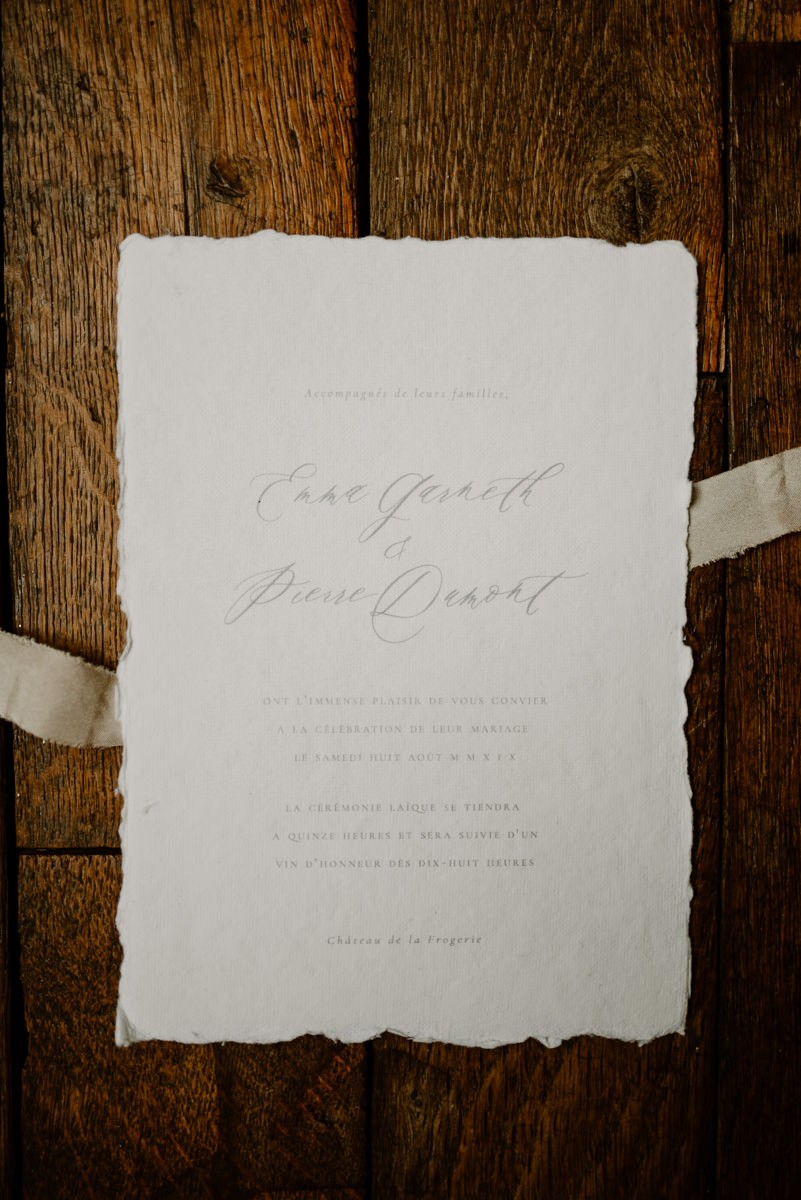 Accompagnés de leurs familles,
Emma Garneth
&
Pierre Dumont
ONT L'IMMENSE PLAISIR DE VOUS CONVIER
A LA CÉLÉBRATION DE LEUR MARIAGE
LE SAMEDI HUIT AOÛT M M X I X
LA CÉRÉMONIE LAÏQUE SE TIENDRA
A QUINZE HEURES ET SERA SUIVIE D'UN
VIN D'HONNEUR DÈS DIX-HUIT HEURES
Château de la Frogerie